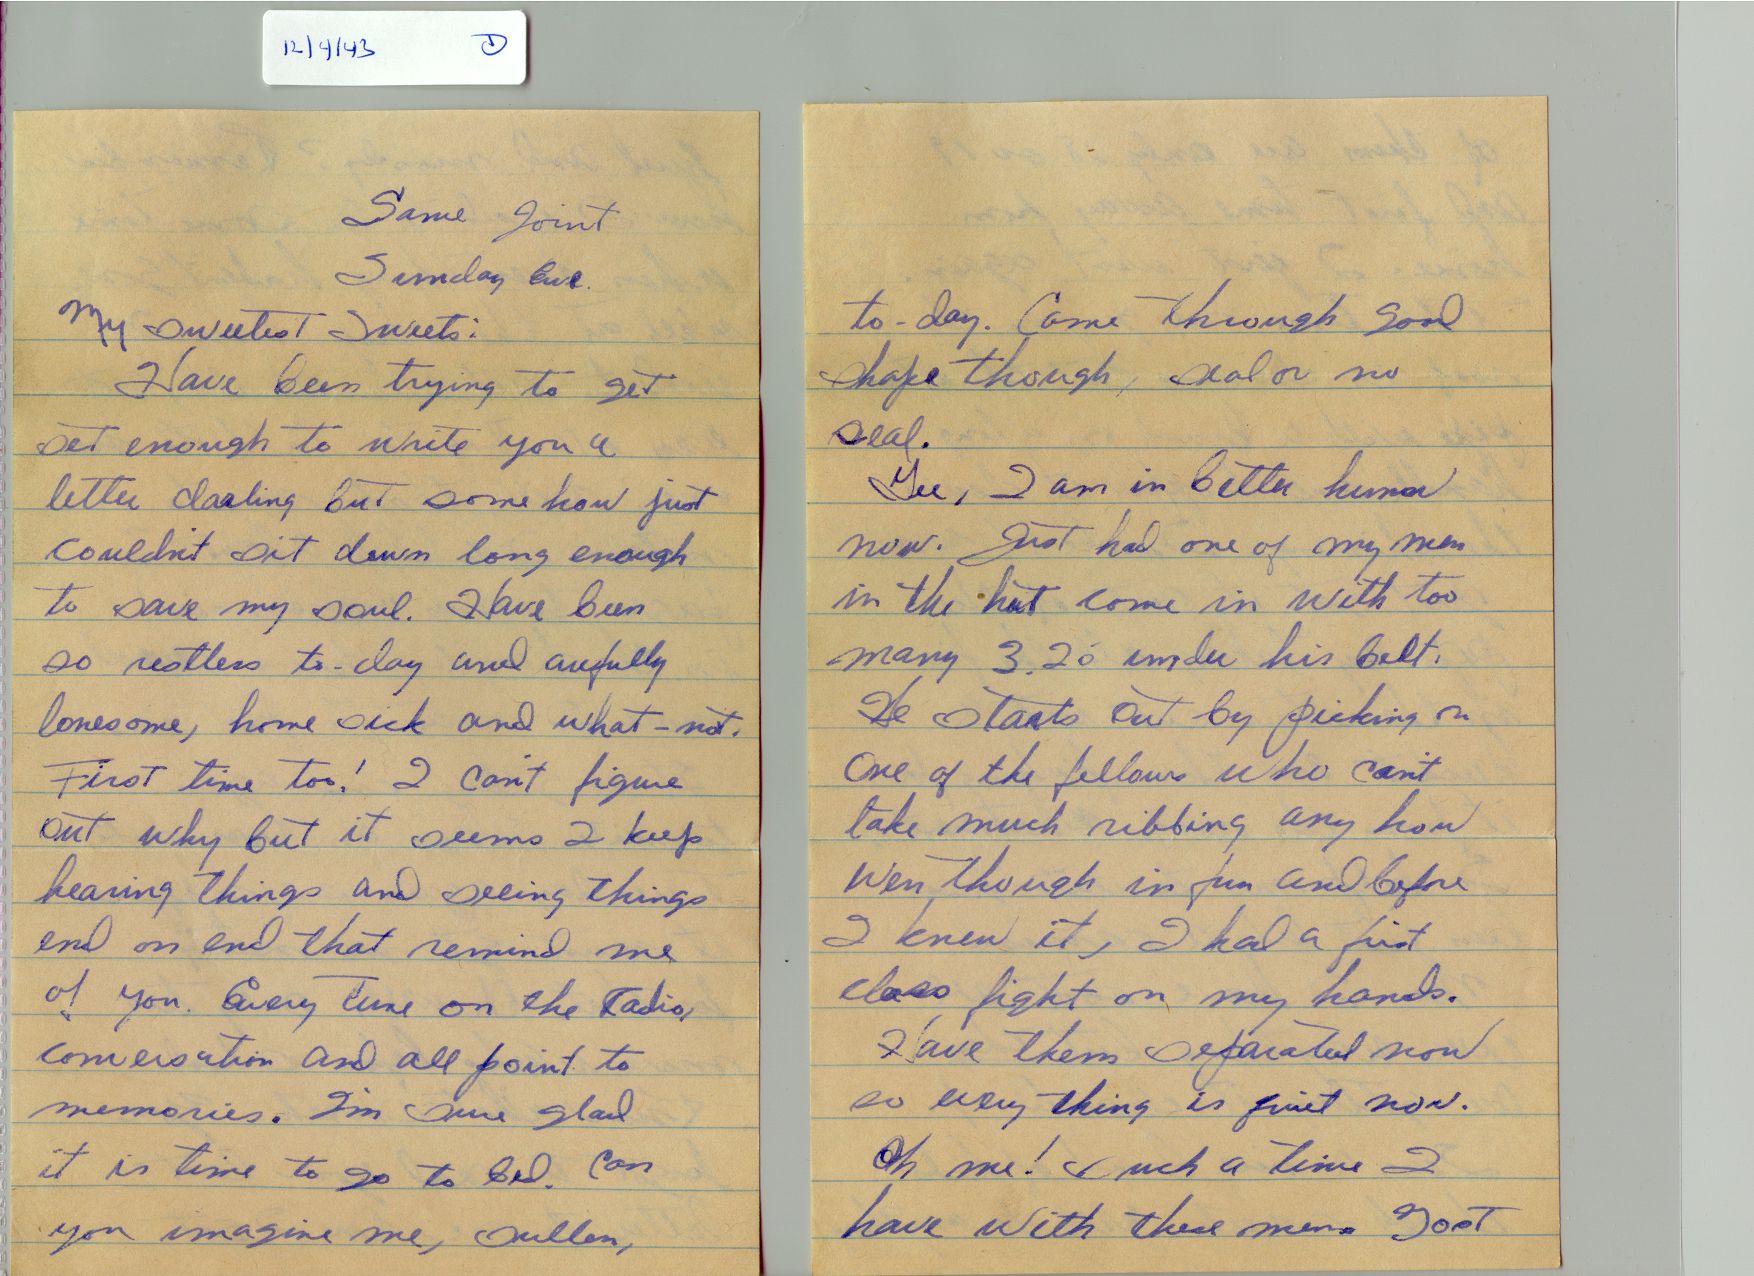 12/4/43 D
Same Joint
Sunday Eve.
My sweetest Sweets:
Have been trying to get
set enough to write you a
letter darling but some how just
couldn't sit down long enough
to save my soul. Have been
so restless to-day and awfully
lonesome, home sick and what-not.
First time too! I can't figure
out why but it seems I keep
hearing things and seeing things
end on end that remind me
of you. Every tune on the radio,
conversation and all point to
memories. I'm sure glad
it is time to go to bed. Can
you imagine me, sullen,
to-day. Came through good
shape though, seal or no
seal.
Gee, I am in better humor
now. Just had one of my men
in the hut come in with too
many 3.20 under his belt.
He starts out by picking on
one of the fellows who can't
take much ribbing any how
even though in fun and before
I knew it, I had a first
class fight on my hands.
Have them separated now
so every thing is quiet now.
Oh me! Such a time I
have with these men.